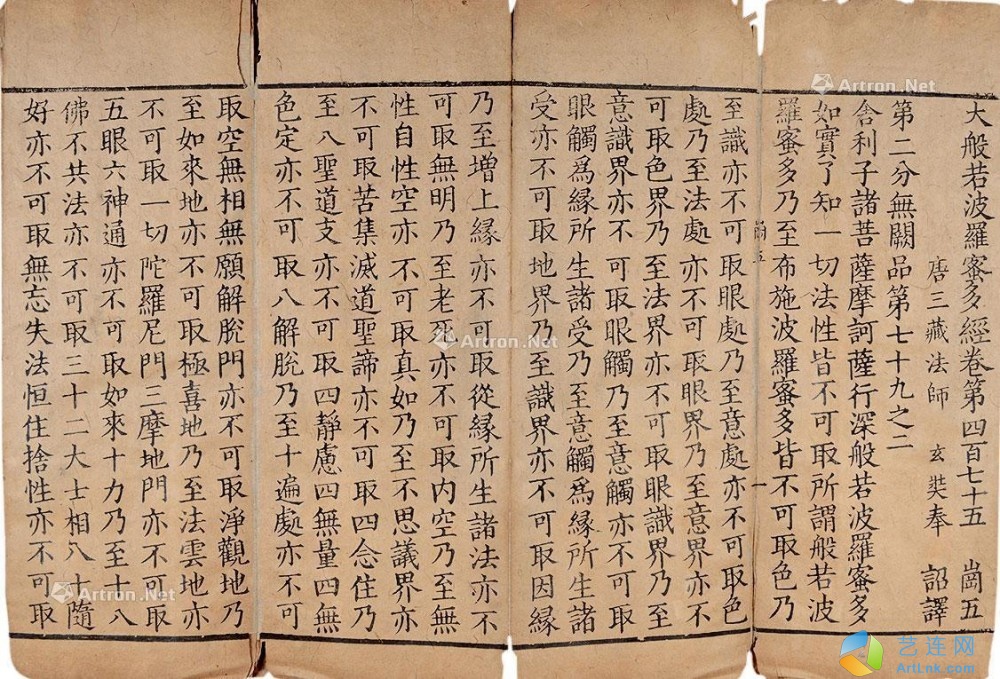 大般若波羅蜜多經卷第四百七十五 崗五
唐三藏法師 玄奘奉 詔譯
第二分無闕品第七十九之二
舍利子諸菩薩摩訶薩行深般若波羅蜜多
如實了知一切法性皆不可取所謂般若波
羅蜜多乃至布施波羅蜜多皆不可取色乃
至識亦不可取眼處乃至意處亦不可取色
處乃至法處亦不可取眼界乃至意界亦不
可取色界乃至法界亦不可取眼識界乃至
意識界亦不可取眼觸乃至意觸亦不可取
眼觸爲緣所生諸受乃至意觸爲緣所生諸
受亦不可取地界乃至識界亦不可取因緣
乃至增上緣亦不可取從緣所生諸法亦不
可取無明乃至老死亦不可取内空乃至無
性自性空亦不可取真如乃至不思議界亦
不可取苦集滅道聖諦亦不可取四念住乃
至八聖道支亦不可取四靜慮四無量四無
色定亦不可取八解脫乃至十遍處亦不可
取空無相無願解脫門亦不可取淨觀地乃
至如來地亦不可取極喜地乃至法雲地亦
不可取一切陀羅尼門三摩地門亦不可取
五眼六神通亦不可取如來十力乃至十八
佛不共法亦不可取三十二大士相八十隨
好亦不可取無忘失法恒住捨性亦不可取
Artron.Net
Artron.Net
Artron.Net
Artron.Net
Artron.Net
艺连网
ArtLnk.com